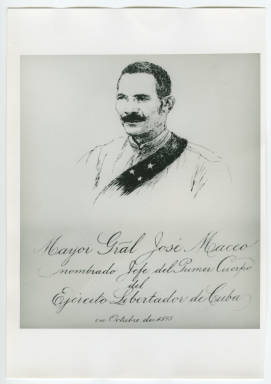 Mayor Gral José Maceo
nombrado Jefe del Primer Cuerpo
del
Ejército Libertador de Cuba
en Octubre de 1895